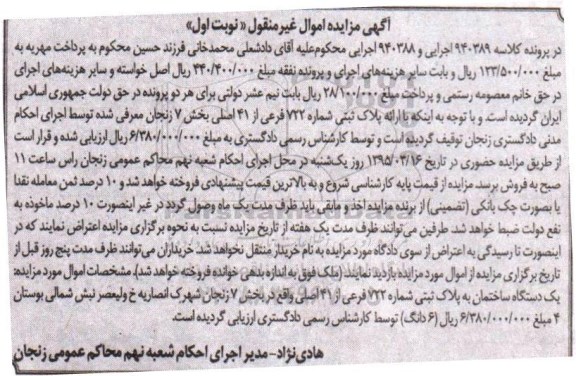 آگهی مزایده اموال غیرمنقول «نوبت اول»
در پرونده کلاسه ۹۴۰۳۸۹ اجرایی و ۹۴۰۳۸۸ اجرایی محکوم‌علیه آقای دادشملی محمدخانی فرزند حسین محکوم به پرداخت مهریه به
مبلغ ۱۳۳/۵۰۰/۰۰۰ ریال و بابت سایر هزینه‌های اجرای و پرونده نفقه مبلغ ۴۴۰/۴۰۰/۰۰۰ ریال اصل خواسته و سایر هزینه‌های اجرای
در حق خانم معصومه رستمی و پرداخت مبلغ ۲۸/۱۰۰/۰۰۰ ریال بابت نیم عشر دولتی برای هر دو پرونده در حق دولت جمهوری اسلامی
ایران گردیده است. و با توجه به اینکه با ارائه پلاک ثبتی شماره ۷۳۲ فرعی از ۴۱ اصلی بخش ۷ زنجان معرفی شده توسط اجرای احکام
مدنی دادگستری زنجان توقیف گردیده است و توسط کارشناس رسمی دادگستری به مبلغ ۶/۳۸۰/۰۰۰/۰۰۰ ریال ارزیابی شده و قرار است
از طریق مزایده حضوری در تاریخ ۱۳۹۵/۰۳/۱۶ روز یک‌شنبه در محل اجرای احکام شعبه نهم محاکم عمومی زنجان راس ساعت ۱۱
صبح به فروش برسد. مزایده از قیمت پایه کارشناسی شروع و به بالاترین قیمت پیشنهادی فروخته خواهد شد و ۱۰ درصد ثمن معامله نقدا
یا بصورت چک بانکی (تضمینی) از برنده مزایده اخذ و مابقی باید ظرف مدت یک ماه وصول گردد در غیر اینصورت ۱۰ درصد ماخوذه به
نفع دولت ضبط خواهد شد. طرفین می‌توانند ظرف مدت یک هفته از تاریخ مزایده نسبت به نحوه برگزاری مزایده اعتراض نمایند که در
اینصورت تا رسیدگی به اعتراض از سوی دادگاه مورد مزایده به نام خریداز منتقل نخواهد شد. خریداران می‌توانند ظرف مدت پنج روز قبل از
تاریخ برگزاری مزایده از اموال مورد مزایده بازدید نمایند. (ملک فوق به اندازه بدهی خوانده فروخته خواهد شد). مشخصات اموال مورد مزایده:
یک دستگاه ساختمان به پلاک ثبتی شماره ۷۳۲ فرعی از ۴۱ اصلی واقع در بخش ۷ زنجان شهرک انصاریه خ ولیعصر نبش شمالی بوستان
۴ مبلغ ۶/۳۸۰/۰۰۰/۰۰۰ ریال (۶ دانگ) توسط کارشناس رسمی دادگستری ارزیابی گردیده است.
هادی‌نژاد- مدیر اجرای احکام شعبه نهم محاکم عمومی زنجان